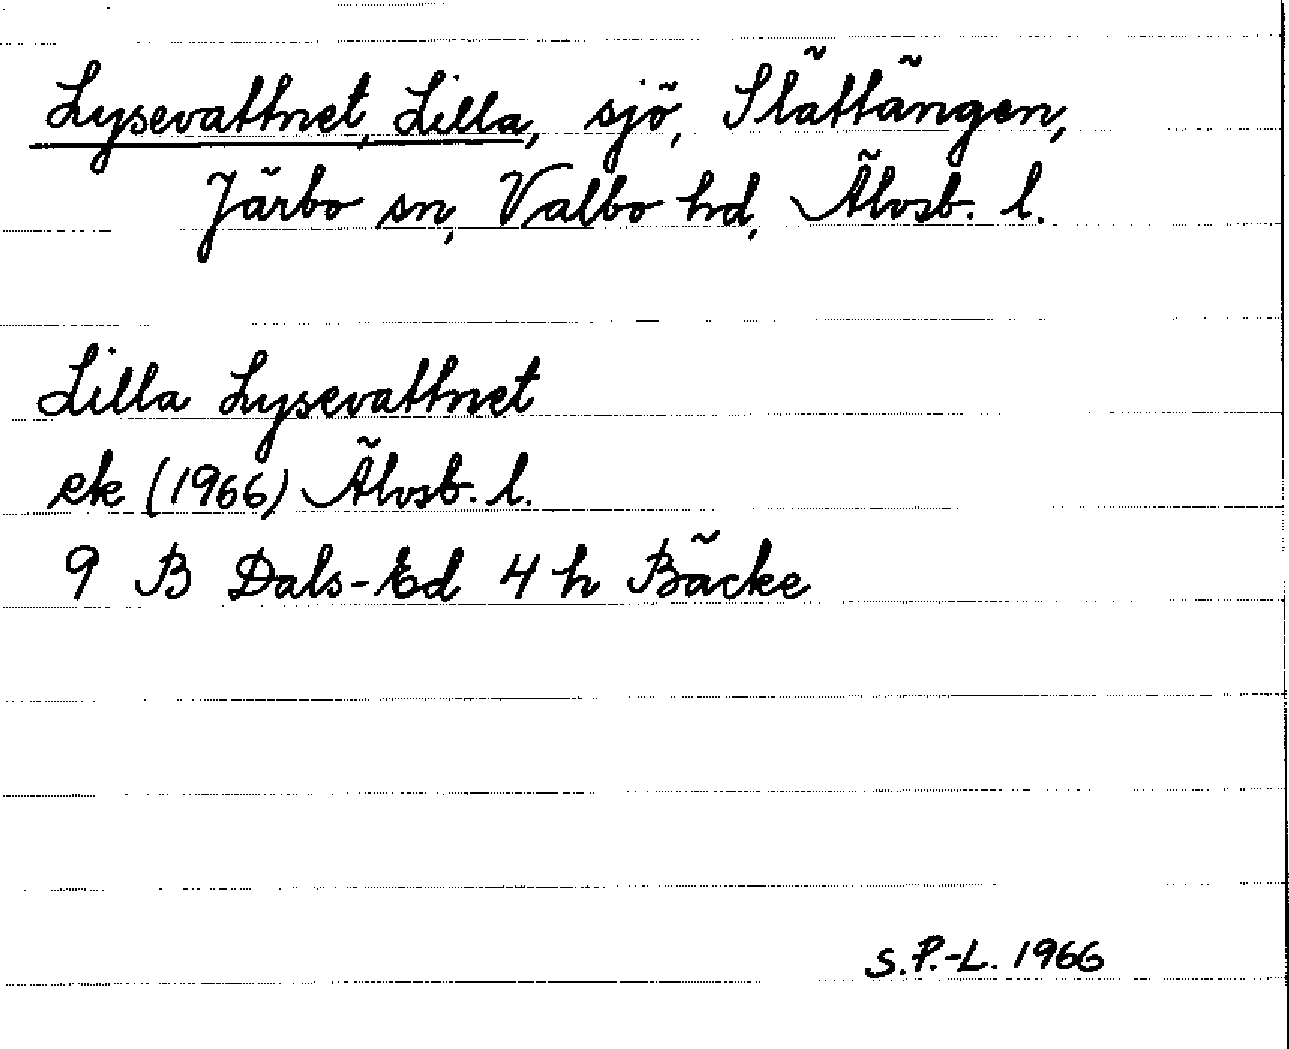 Lysevattnet, Lilla, sjö, Slättängen,
Järbo sn, Valbo hd, Älvsb. l.
Lilla Lysevattnet
ek (1966) Älvsb. l.
9 B Dals-Ed 4 h Bäcke
S.P.-L. 1966